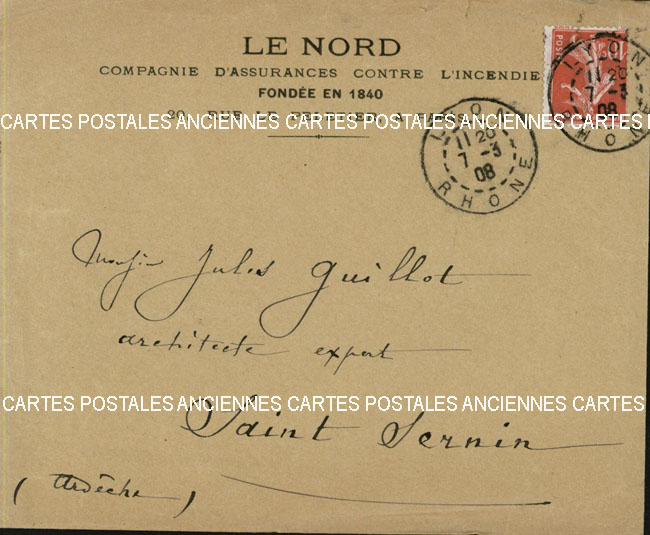 LE NORD
COMPAGNIE D'ASSURANCES CONTRE L'INCENDIE
FONDÉE EN 1840
20, RUE LE PELETIER,
CARTES POSTALES ANCIENNES CARTES POSTALES ANCIENNES CARTES
POSTES
LYON
11 20
7 - 3
08
RHONE
LYON
11 20
7 - 3
08
RHONE
Monsieur Jules Guillot
architecte expert
CARTES POSTALES ANCIENNES CARTES POSTALES ANCIENNES CARTES
Saint Sernin
(Ardèche)